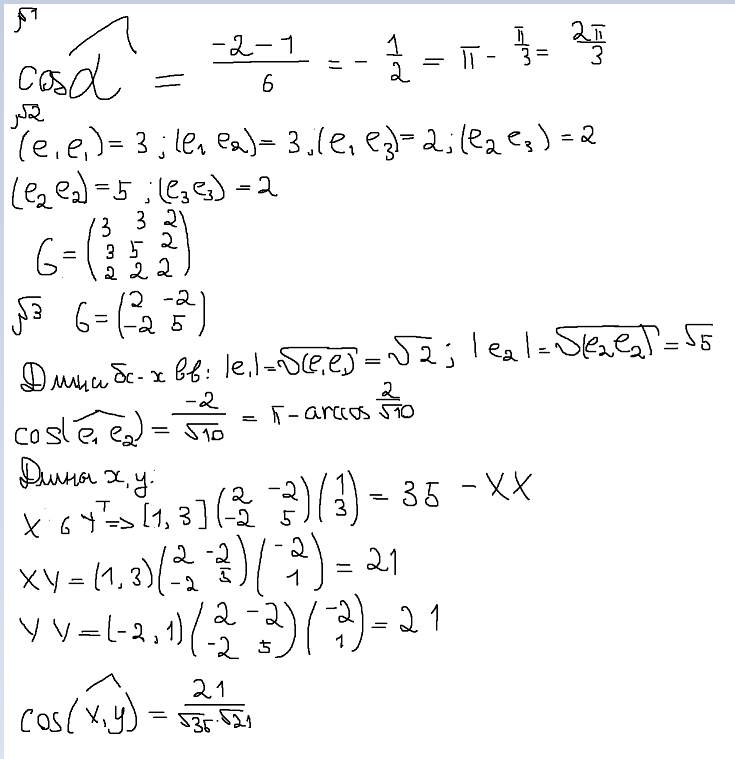 √1
cos α = (-2-1)/6 = - 1/2 = π - π/3 = 2π/3
√2
(e₁e₁)=3; (e₁ e₂)=3, (e₁ e₃)=2; (e₂ e₃)=2
(e₂ e₂)=5; (e₃e₃)=2
G = (3 3 2
3 5 2
2 2 2)
√3 G = (2 -2
-2 5)
Длина бс-х вв: |e₁|=√(e₁e₁) = √2; |e₂|=√(e₂e₂) = √5
cos(e₁ e₂) = -2/√10 = π - arccos 2/√10
Длина x,y:
X G Yᵀ => [1,3] (2 -2; -2 5) (1; 3) = 35 - XX
XY = (1,3) (2 -2; -2 5) (-2; 1) = 21
YY = (-2,1) (2 -2; -2 5) (-2; 1) = 21
cos(x,y) = 21/(√35·√21)